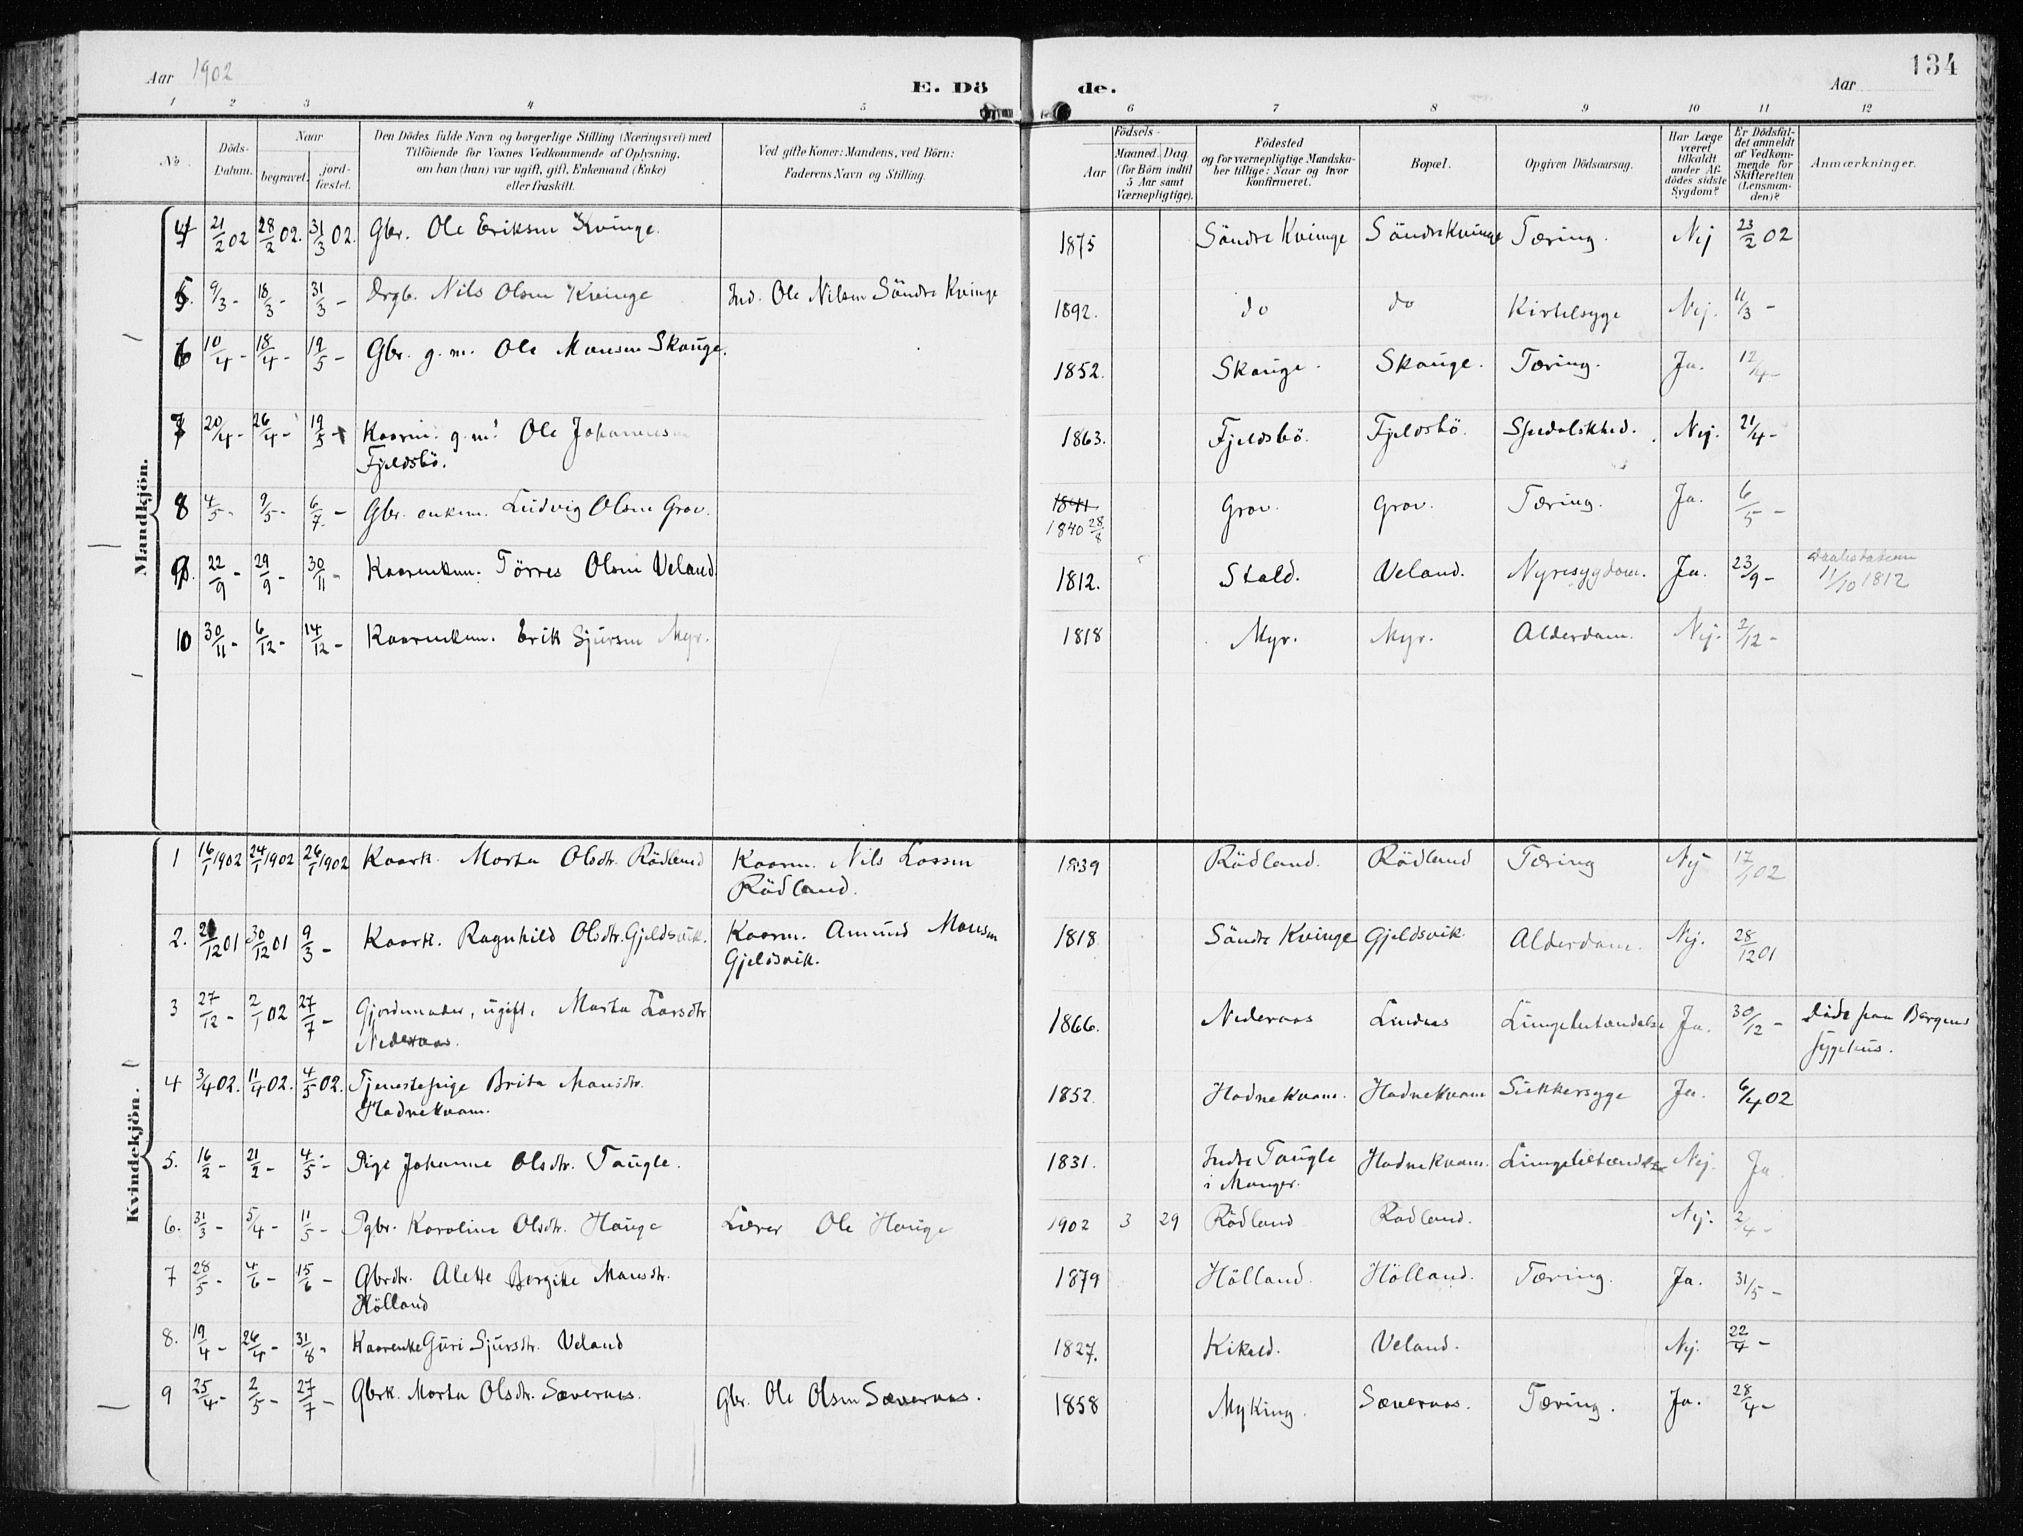 Aar 1902
E. Dö
de.
Aar
134
1 2 3 4 5 6 7 8 9 10 11 12
No
Döds-Datum.
Naar
begravet.
jord-fæstet.
Den Dödes fulde Navn og borgerlige Stilling (Næringsvei) med
Tilföiende for Voxnes Vedkommende af Oplysning,
om han (hun) var ugift, gift, Enkemand (Enke)
eller fraskilt.
Ved gifte Koner: Mandens, ved Börn:
Faderens Navn og Stilling.
Födsels-
Aar
Maaned. Dag.
(for Börn indtil
5 Aar samt
Værnepligtige).
Födested
og for værnepligtige Mandska-
ber tillige: Naar og hvor
konfirmeret.
Bopæl.
Opgiven Dödsaarsag.
Har Læge
været
tilkaldt
under Af-
dödes sidste
Sygdom?
Er Dödsfal-
det anmeldt
af Vedkom-
mende for
Skifteretten
(Lensman-
den)?
Anmærkninger.
Mandkjön.
4 21/2 02 28/2 02. 31/3 02. Gbr. Ole Eriksen Kvinge. 1875 Söndre Kvinge Söndre Kvinge Tæring. Nej 23/2 02
5. 9/3 - 18/3 - 31/3 - Drgb. Nils Olsen Kvinge Ind. Ole Nilsen Söndre Kvinge 1892. do do Kirtelsyge Nej. 11/3 -
6 10/4 - 18/4 - 19/5 - Gbr. g.m. Ole Monsen Skauge. 1852. Skauge. Skauge. Tæring. Ja. 12/4 -
7 20/4 - 26/4 - 19/5 - Kaarm. g.m. Ole Johannesen
Fjeldsbö. 1863. Fjeldsbö. Fjeldsbö. Spedalskhed. Nej. 21/4 -
8 4/5 - 9/5 - 6/7 - Gbr. enkem. Ludvig Olsen Grov. 1841
1840 28/8 Grov. Grov. Tæring. Ja. 6/5 -
9. 22/9 - 29/9 - 30/11 - Kaarenkem. Törres Olsen Veland 1812. Stald. Veland. Nyresygdom. Ja. 23/9 -
11/10 1812
10 30/11 - 6/12 - 14/12 - Kaarenkem. Erik Sjursen Myr. 1818 Myr. Myr. Alderdom. Nej. 2/12 -
Kvindekjön.
1 16/1 1902 24/1 1902 26/1 1902 Kaark. Marta Olsdtr. Rödland Kaarm. Nils Larsen
Rödland. 1839 Rödland. Rödland Tæring Nej 17/1 02
2. 2/12 01 30/12 01 9/3 - Kaark. Ragnhild Olsdtr. Gjeldsvik. Kaarm. Amund Monsen
Gjeldsvik. 1818. Söndre Kvinge Gjeldsvik. Alderdom. Nej. 28/12 01
3 27/12 - 2/1 02 27/7 - Gjordemoder, ugift, Marta Larsdtr
Nederaas. 1866. Nederaas Lindaas Lungebetændelse Ja. 30/12 - Döde paa Bergens
sygehus.
4 3/4 02. 11/4 02. 4/5 02. Tjenestepige Brita Monsdtr.
Hodnekvam. 1852. Hodnekvam. Hodnekvam Sukkersyge Ja. 6/4 02
5. 16/2 - 21/2 - 4/5 - Pige Johanne Olsdtr. Taugle. 1831. Indre Taugle
i Manger. Hodnekvam. Lungebetændelse Nej. Ja
6. 31/3 - 5/4 - 11/5 - Pgbr. Karoline Olsdtr. Hauge Lærer Ole Hauge 1902 3 29 Rödland Rödland. Nej. 2/4 -
7 28/5 - 4/6 - 15/6 - Gbrdtr. Alette Bergitte Monsdtr.
Hölland 1879 Hölland. Hölland. Tæring. Ja. 31/5 -
8. 19/4 - 26/4 - 31/8 - Kaarenke Guri Sjursdtr. Veland 1827. Kikeld. Veland. Nej. 22/4 -
9 25/4 - 2/5 - 27/7 - Gbrk. Marta Olsdtr. Sæveraas. Gbr. Ole Olsen Sæveraas. 1858 Myking. Sæveraas. Tæring. Ja. 28/4 -